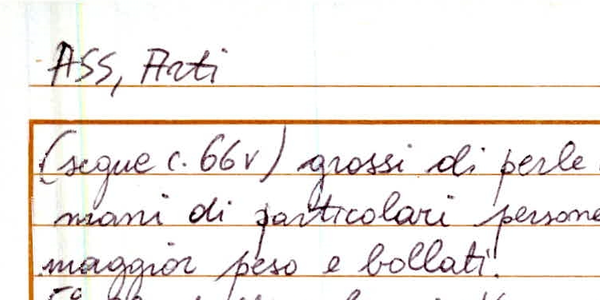 ASS, Arti
(segue c. 66v) grossi di perle
mani di particolari persone
maggior peso e bollati.
5°